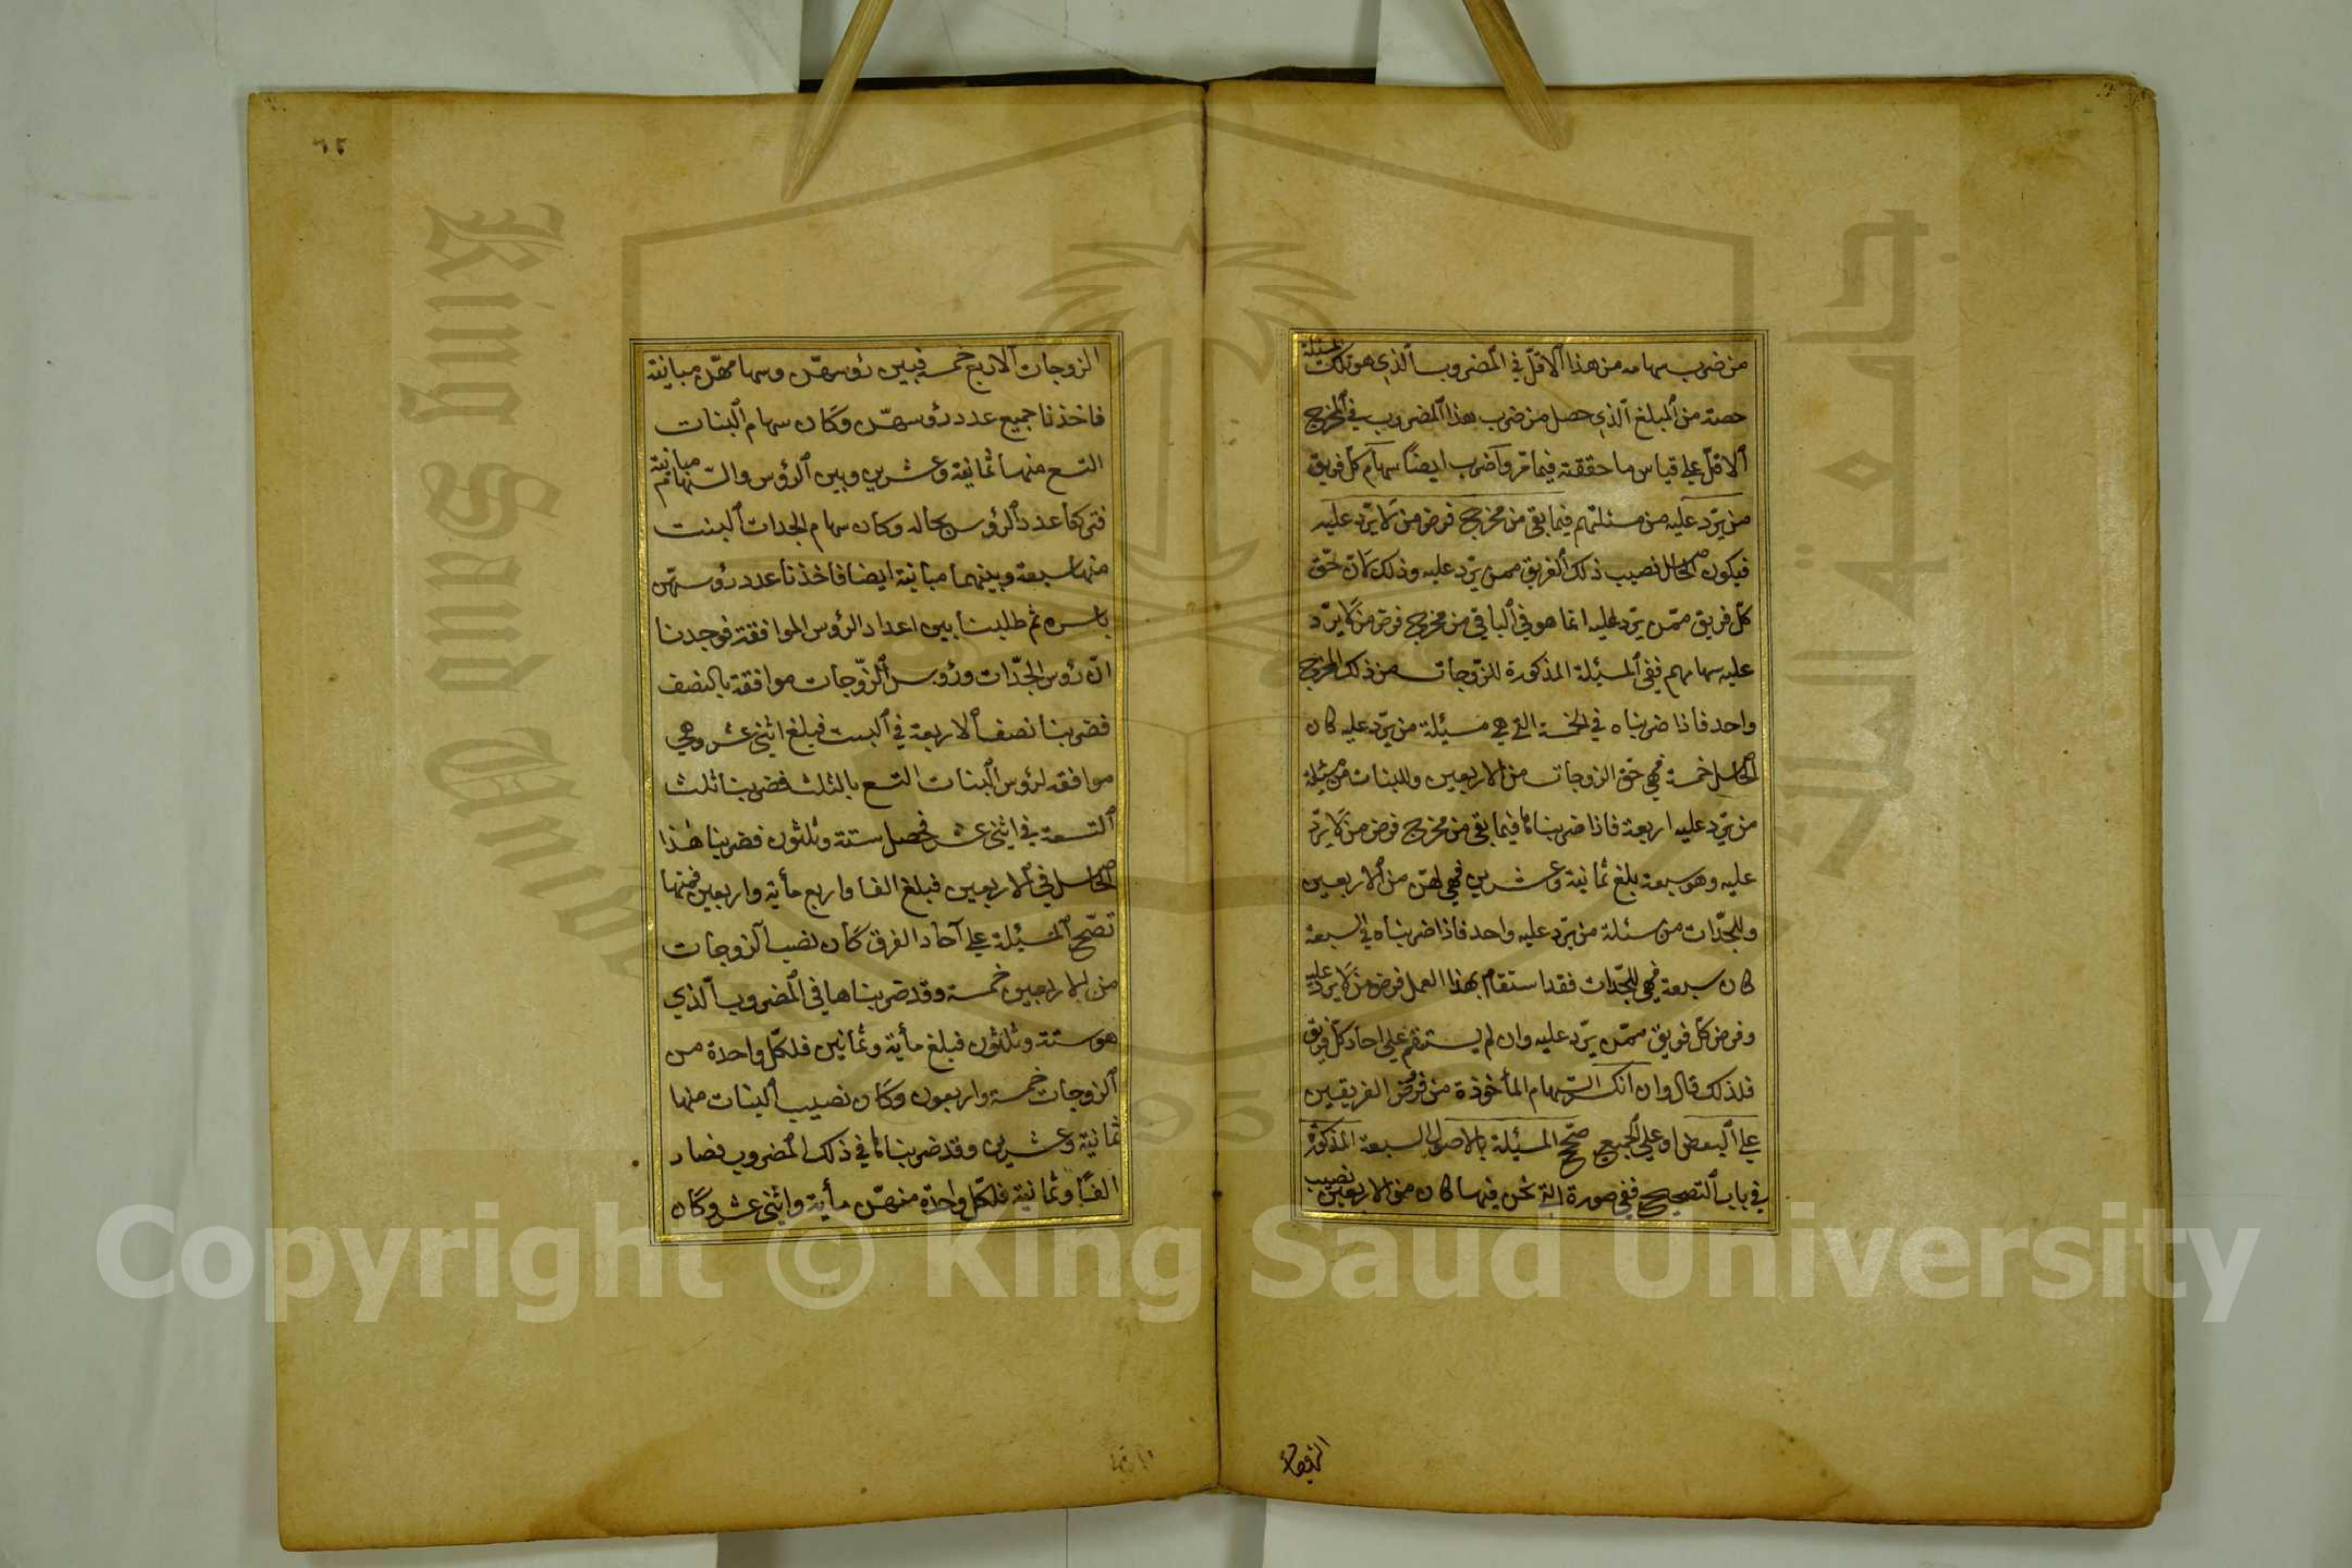 من ضرب سهامه من هذا الاقل في المضروب الذي هو تلك المسئلة
حصته من المبلغ الذي حصل من ضرب هذا المضروب في المخرج
الاقل على قياس ما حققته فيما مر واضرب ايضاً سهام كل فريق
من يرد عليه من مسئلتهم فيما بقى من مخرج فرض من لا يرد عليه
فيكون الحاصل نصيب ذلك الفريق ممن يرد عليه وذلك لان حق
كل فريق ممن يرد عليه انما هو في الباقي من مخرج فرض من لا يرد
عليه سهامهم ففي المسئلة المذكورة للزوجات من ذلك المخرج
واحد فاذا ضربناه في الخمسة التي هي مسئلة من يرد عليه كان
الحاصل خمسة فهي حق الزوجات من الاربعين وللبنات من مسئلة
من يرد عليه اربعة فاذا ضربناها فيما بقى من مخرج فرض من لا يرد
عليه وهو سبعة بلغ ثمانية وعشرين فهي لهن من الاربعين
وللجدات من مسئلة من يرد عليه واحد فاذا ضربناه في السبعة
كان سبعة فهي للجدات فقد استقام بهذا العمل فرض من لا يرد عليه
وفرض كل فريق ممن يرد عليه وان لم يستقم على احاد كل فريق
فلذلك قال وان انكسر السهام المأخوذة من فرض الفريقين
على البعض او على الجميع صحح المسئلة بالاصول السبعة المذكورة
في باب التصحيح ففي صورة التي نحن فيها كان من الاربعين نصيب
الزوجات
٦٢
الزوجات الاربع خمسة فبين رؤسهن وسهامهن مباينة
فاخذنا جميع عدد رؤسهن وكان سهام البنات
التسع منها ثمانية وعشرين وبين الرؤس والسهام مباينة
فتركنا عدد الرؤس بحاله وكان سهام الجدات الست
منها سبعة وبينهما مباينة ايضا فاخذنا عدد رؤسهن
باسره ثم طلبنا بين اعداد الرؤس الموافقة فوجدنا
ان رؤس الجدات ورؤس الزوجات موافقة بالنصف
فضربنا نصف الاربعة في الست فبلغ اثنى عشر وهي
موافقه لرؤس البنات التسع بالثلث فضربنا ثلث
التسعة في اثنى عشر فحصل ستة وثلثون فضربنا هذا
الحاصل في الاربعين فبلغ الفا واربع مأية واربعين فمنها
تصح المسئلة على آحاد الفرق كان نصيب الزوجات
من الاربعين خمسة وقد ضربناها في المضروب الذي
هو ستة وثلثون فبلغ مأية وثمانين فلكل واحدة من
الزوجات خمسة واربعون وكان نصيب البنات منها
ثمانية وعشرين وقد ضربناها في ذلك المضروب فصار
الفًا وثمانية فلكل واحدة منهن مأية واثنى عشر وكان
Copyright © King Saud University